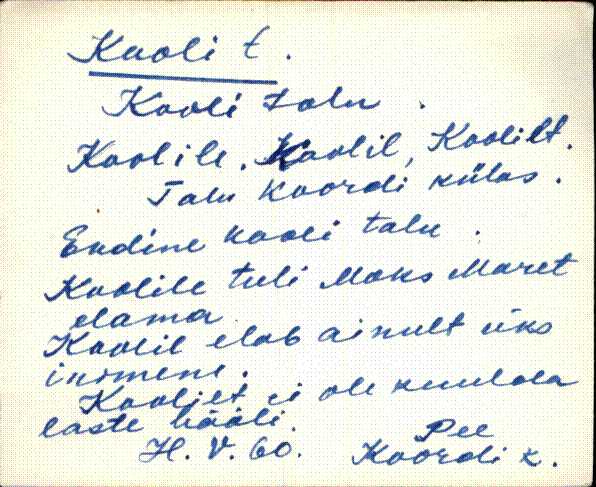 Kooli t.
Kooli talu.
Koolile, Koolil, Koolilt.
Talu Koordi külas.
Endine kooli talu.
Koolile tuli Maks Maret
elama
Koolil elab ainult üks
inimene.
Koolilt ei ole kuulda
laste hääli.
H. V. 60. Pee
Koordi k.